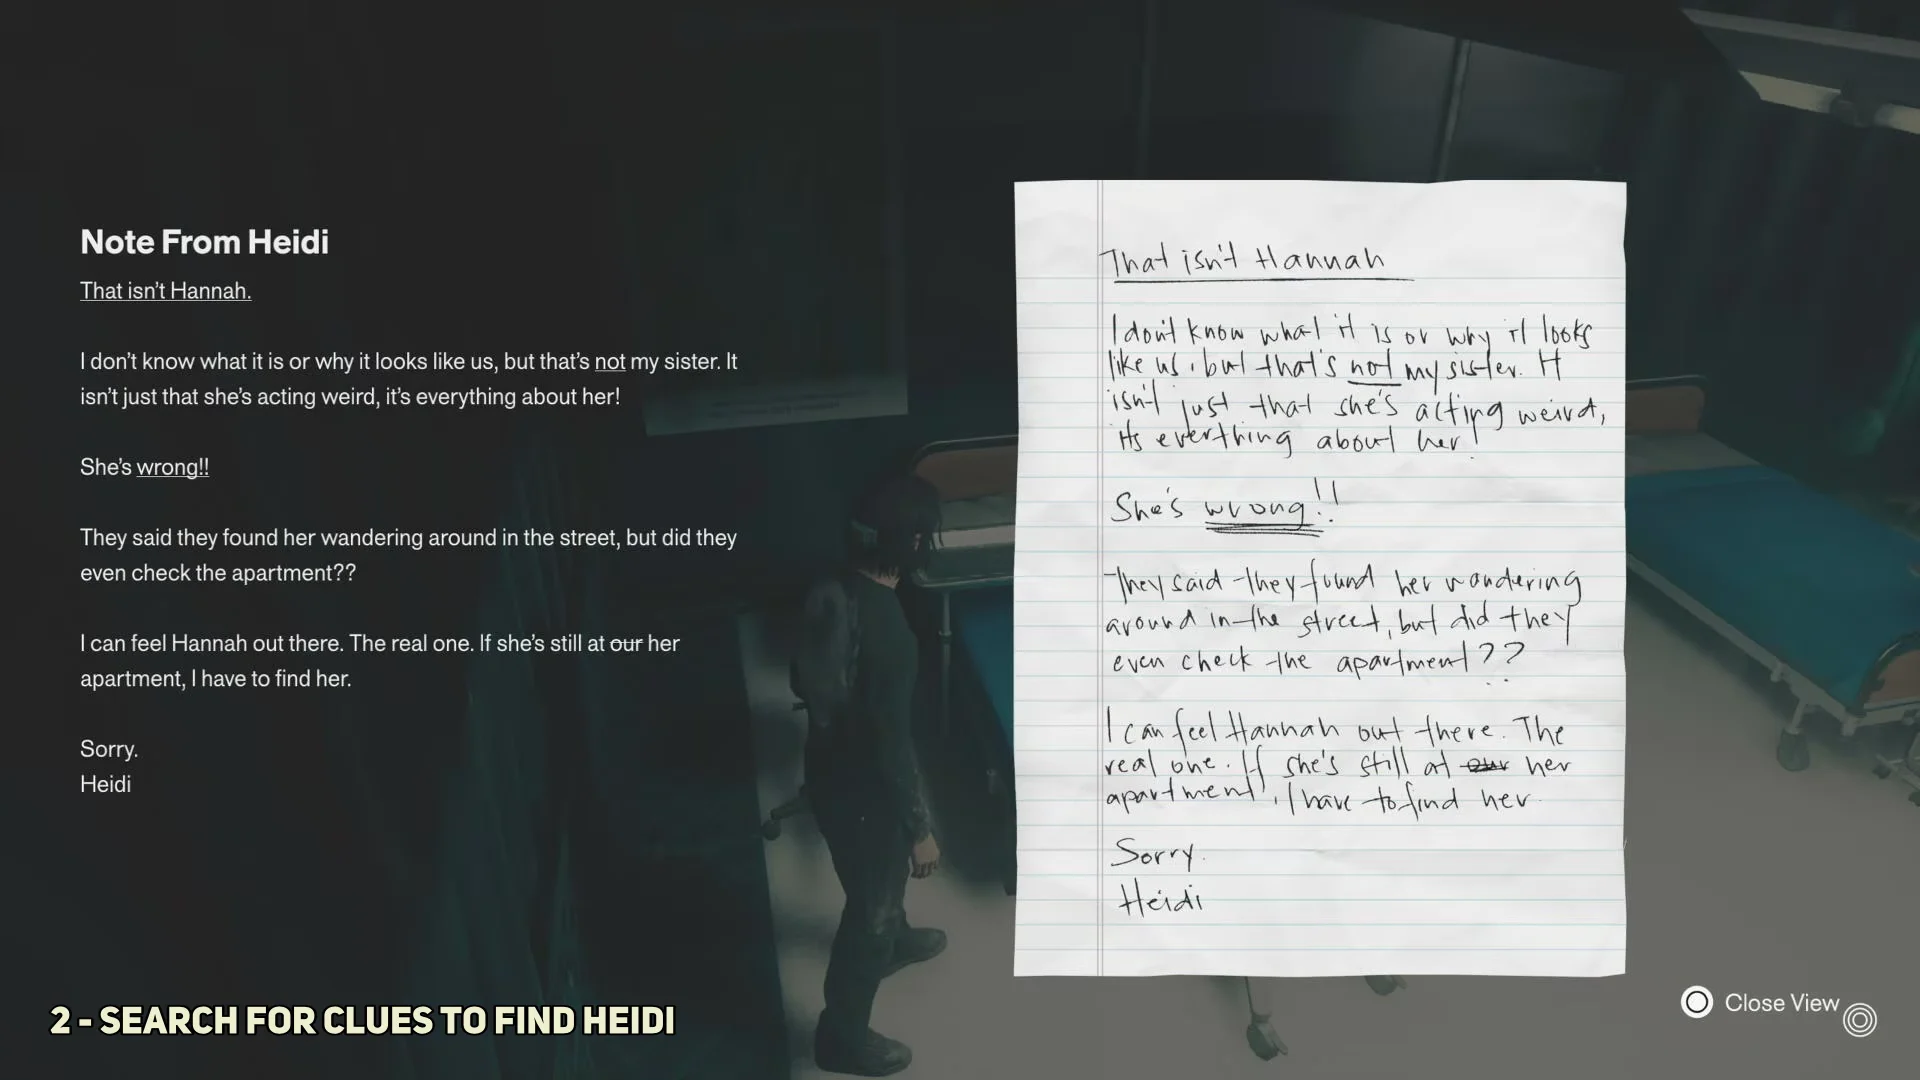 Note From Heidi
That isn't Hannah.
I don't know what it is or why it looks like us, but that's not my sister. It
isn't just that she's acting weird, it's everything about her!
She's wrong!!
They said they found her wandering around in the street, but did they
even check the apartment??
I can feel Hannah out there. The real one. If she's still at our her
apartment, I have to find her.
Sorry.
Heidi
That isn't Hannah
I don't know what it is or why it looks
like us, but that's not my sister. It
isn't just that she's acting weird,
its everthing about her!
She's wrong!!
They said they found her wandering
around in the street, but did they
even check the apartment??
I can feel Hannah out there. The
real one. If she's still at our her
apartment, I have to find her.
Sorry.
Heidi
2 - SEARCH FOR CLUES TO FIND HEIDI
Close View